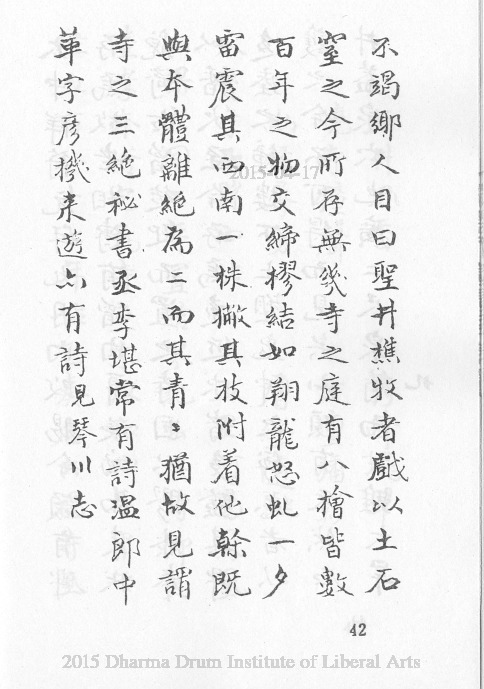 不竭鄉人目曰聖井樵牧者戲以土石
窒之今所存無幾寺之庭有八檜皆數
百年之物交締樛結如翔龍怒虬一夕
雷震其西南一株撇其枝附着他榦既
與本體離絕為二而其青〻猶故見謂
寺之三絕祕書丞李堪常有詩温郎中
革字彦機來遊亦有詩見琴川志
2015-04-17
42
2015 Dharma Drum Institute of Liberal Arts